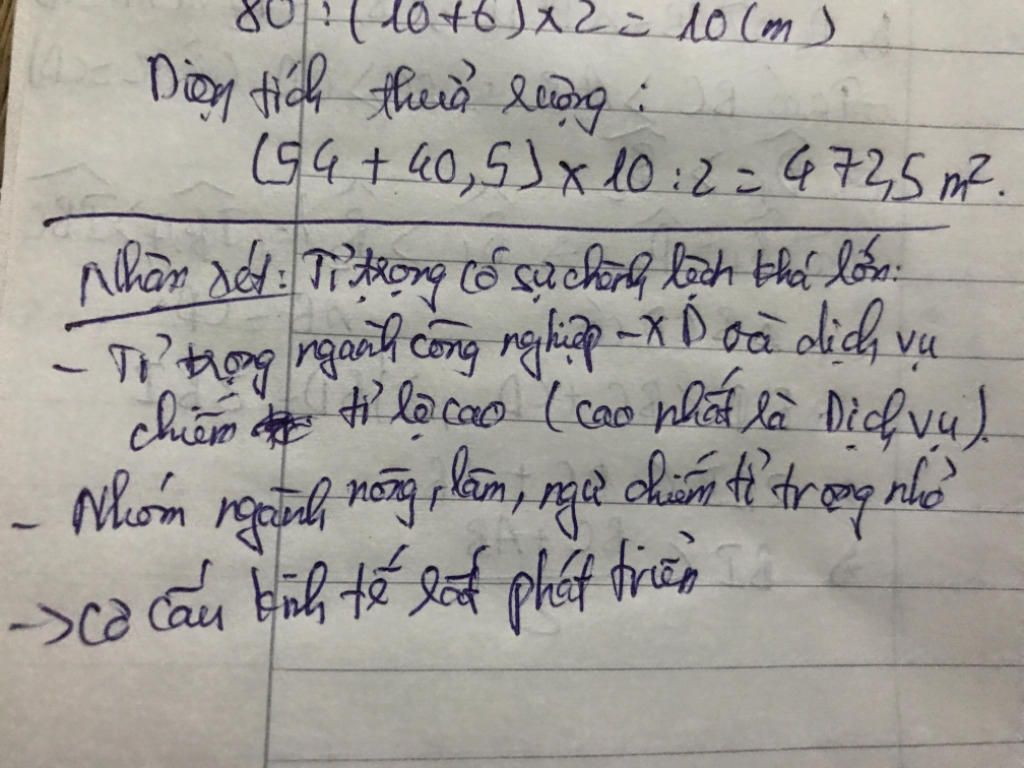 80 : (10+6) x 2 = 10 (m)
Diện tích thuở ruộng :
(54 + 40,5) x 10 : 2 = 472,5 m².
Nhận xét: Tỉ trọng có sự chênh lệch khá lớn:
- Tỉ trọng ngành công nghiệp - XD và dịch vụ
chiếm tỉ lệ cao (cao nhất là Dịch vụ).
- Nhóm ngành nông, lâm, ngư chiếm tỉ trọng nhỏ
→ Cơ cấu kinh tế rất phát triển